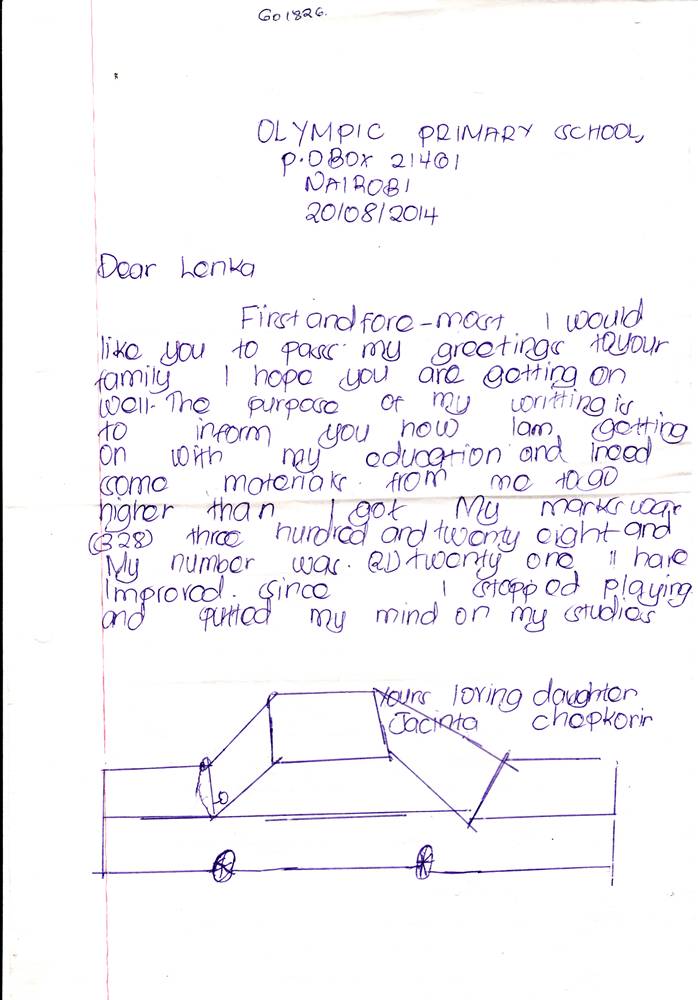 G01826.
OLYMPIC PRIMARY SCHOOL,
P.O BOX 21461
NAIROBI
20/08/2014
Dear Lenka
First and fore-most I would
like you to pass my greetings to your
family I hope you are getting on
well. The purpose of my writting is
to inform you how Iam getting
on with my education and ineed
some materials from me to go
higher than I got My marks was
(328) three hundred and twenty eight and
My number was (21) twenty one I have
Improved. since I stopped playing
and putted my mind on my studies
Yours loving daughter
Jacinta chepkorir